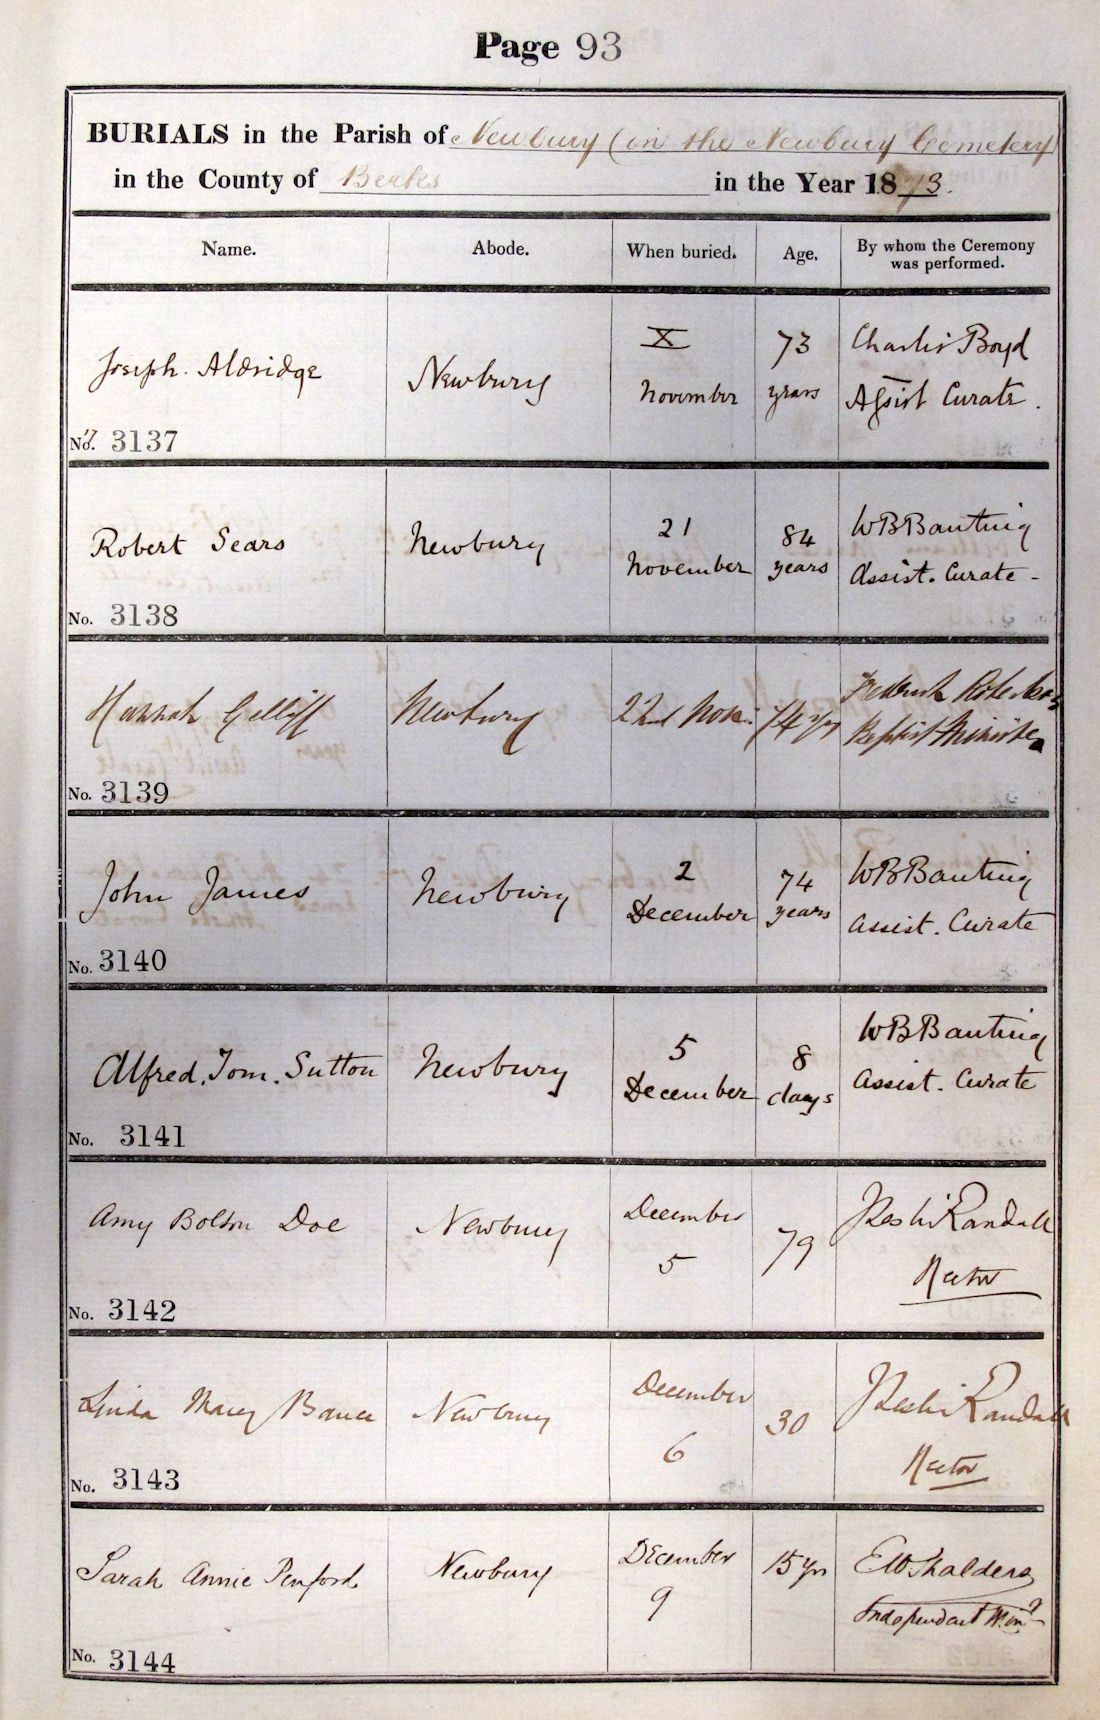 Page 93
BURIALS in the Parish of Newbury (in the Newbury Cemetery)
in the County of Berks in the Year 1873.
Name. Abode. When buried. Age. By whom the Ceremony was performed.
Joseph Aldridge Newbury X November 73 years Charles Boyd Assist Curate.
No. 3137
Robert Sears Newbury 21 November 84 years WB Banting Assist. Curate
No. 3138
Hannah Newbury 22nd Nov. 74 yrs Frederick Baptist Minister
No. 3139
John James Newbury 2 December 74 years WB Banting Assist. Curate
No. 3140
Alfred Tom Sutton Newbury 5 December 8 days WB Banting Assist. Curate
No. 3141
Amy Bolton Doe Newbury December 5 79 J Leslie Randall Rector
No. 3142
Linda Mary Newbury December 6 30 J Leslie Randall Rector
No. 3143
Sarah Annie Penford Newbury December 9 15 yrs E W Shalders Independent Minr
No. 3144